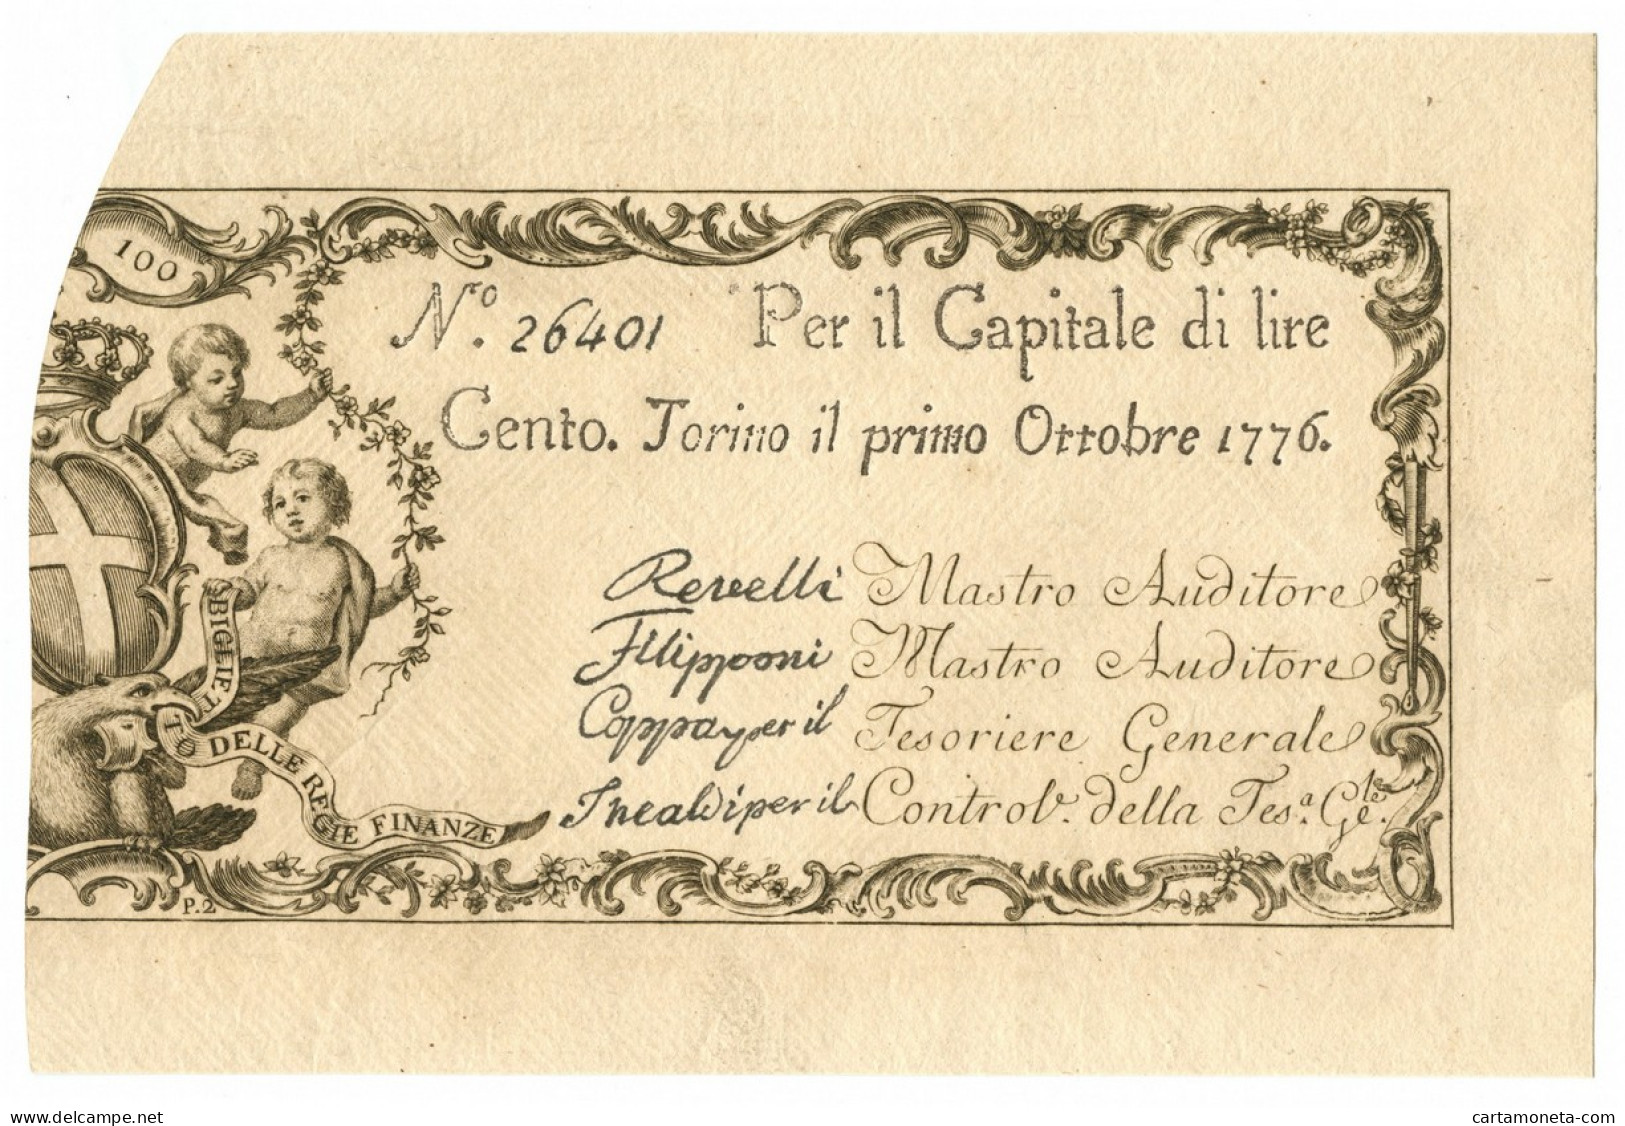 100
Nro. 26401 Per il Capitale di lire
Cento. Torino il primo Ottobre 1776.
Revelli Mastro Auditore
Filipponi Mastro Auditore
Coppa per il Tesoriere Generale
per il Controle. della Tesa. Gle.
BIGLIETTO DELLE REGIE FINANZE
P.2
www.delcampe.net
cartamoneta-com